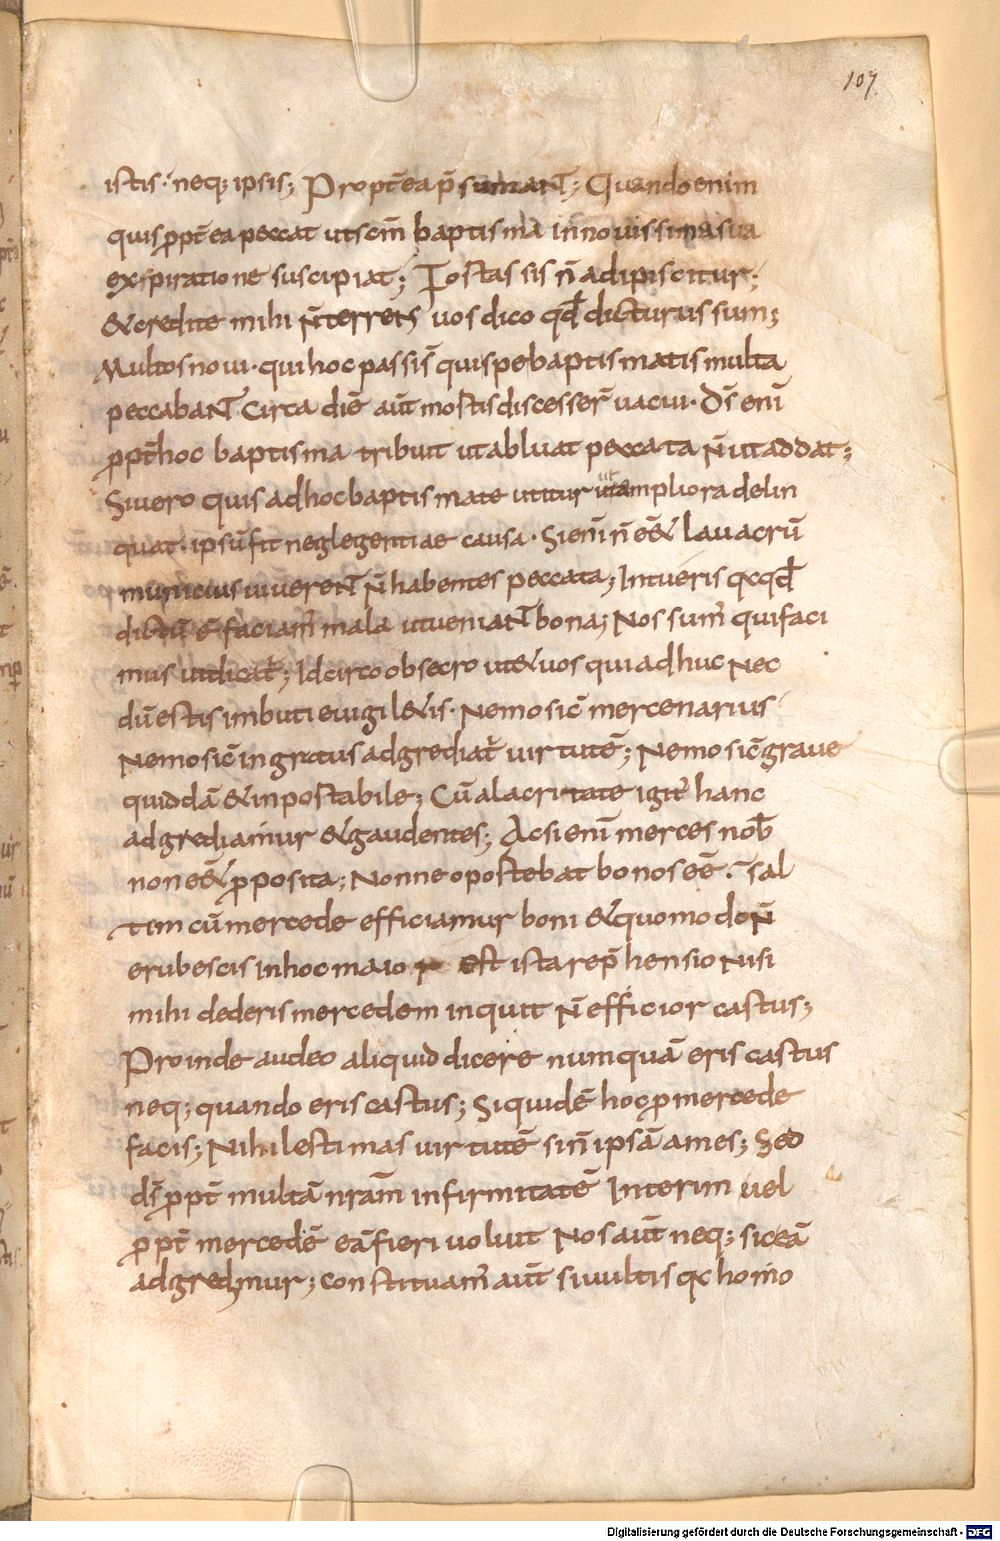 107.
istis · neq; ipsis; Propt̄ea p̄sumanт; Quandoenim
quis ꝓpt̄ea peccat utsc̄m baptisma innouissimasua
exspiratione suscipiat; Fortassis n̄ adipiscitur;
&credite mihi n̄ terrens uos dico qđ dicturus sum;
Multos noui · qui hoc passis̄ quispe baptismatis multa
peccabant Circa diē aūt mortis discesser̄ uacui · Ds̄ enī
ꝓpt̄ hoc baptisma tribuit ut abluat peccata n̄ ut addat;
Siuero quis ad hoc baptismate utitur ut ampliora delin
quat · ipsū fit neglegentiae causa · Si enī n̄ eē& lauacrū
municius uiuerent n̄ habentes peccata; Intueris qꝫqđ
dictū ē faciam̄ mala utueniant bona; Nos sum̄ qui faci
mus utdicat̄; Idcirco obsecro ut&uos qui adhuc nec
dū estis imbuti euigil&is · Nemo sic̄ mercenarius
Nemo sic̄ ingratus adgrediat̄ uirtutē; Nemo sic̄ graue
quiddā &inportabile; Cū alacritate igit̄ hanc
adgrediamur &gaudentes; Ac si enī merces nob̄
non eē& ꝓposita; Nonne oportebat bonos eē. sal
tem cū mercede efficiamur boni &quomodo n̄
erubescis in hoc maio r est ista rep̄hensio Nisi
mihi dederis mercedem inquit n̄ efficior castus;
Proinde audeo aliquid dicere numquā eris castus
neq; quando eris castus; Siquidē hoc ꝓ mercede
facis; Nihil estimas uirtutē si n̄ ipsā ames; Sed
ds̄ ꝓpt̄ multā nr̄am infirmitatē Interim uel
ꝓpt̄ mercedē eā fieri uoluit Nos aūt neq; sic eā
adgredimur; constituam̄ aūt si uultis qꝫ homo
Digitalisierung gefördert durch die Deutsche Forschungsgemeinschaft - DFG